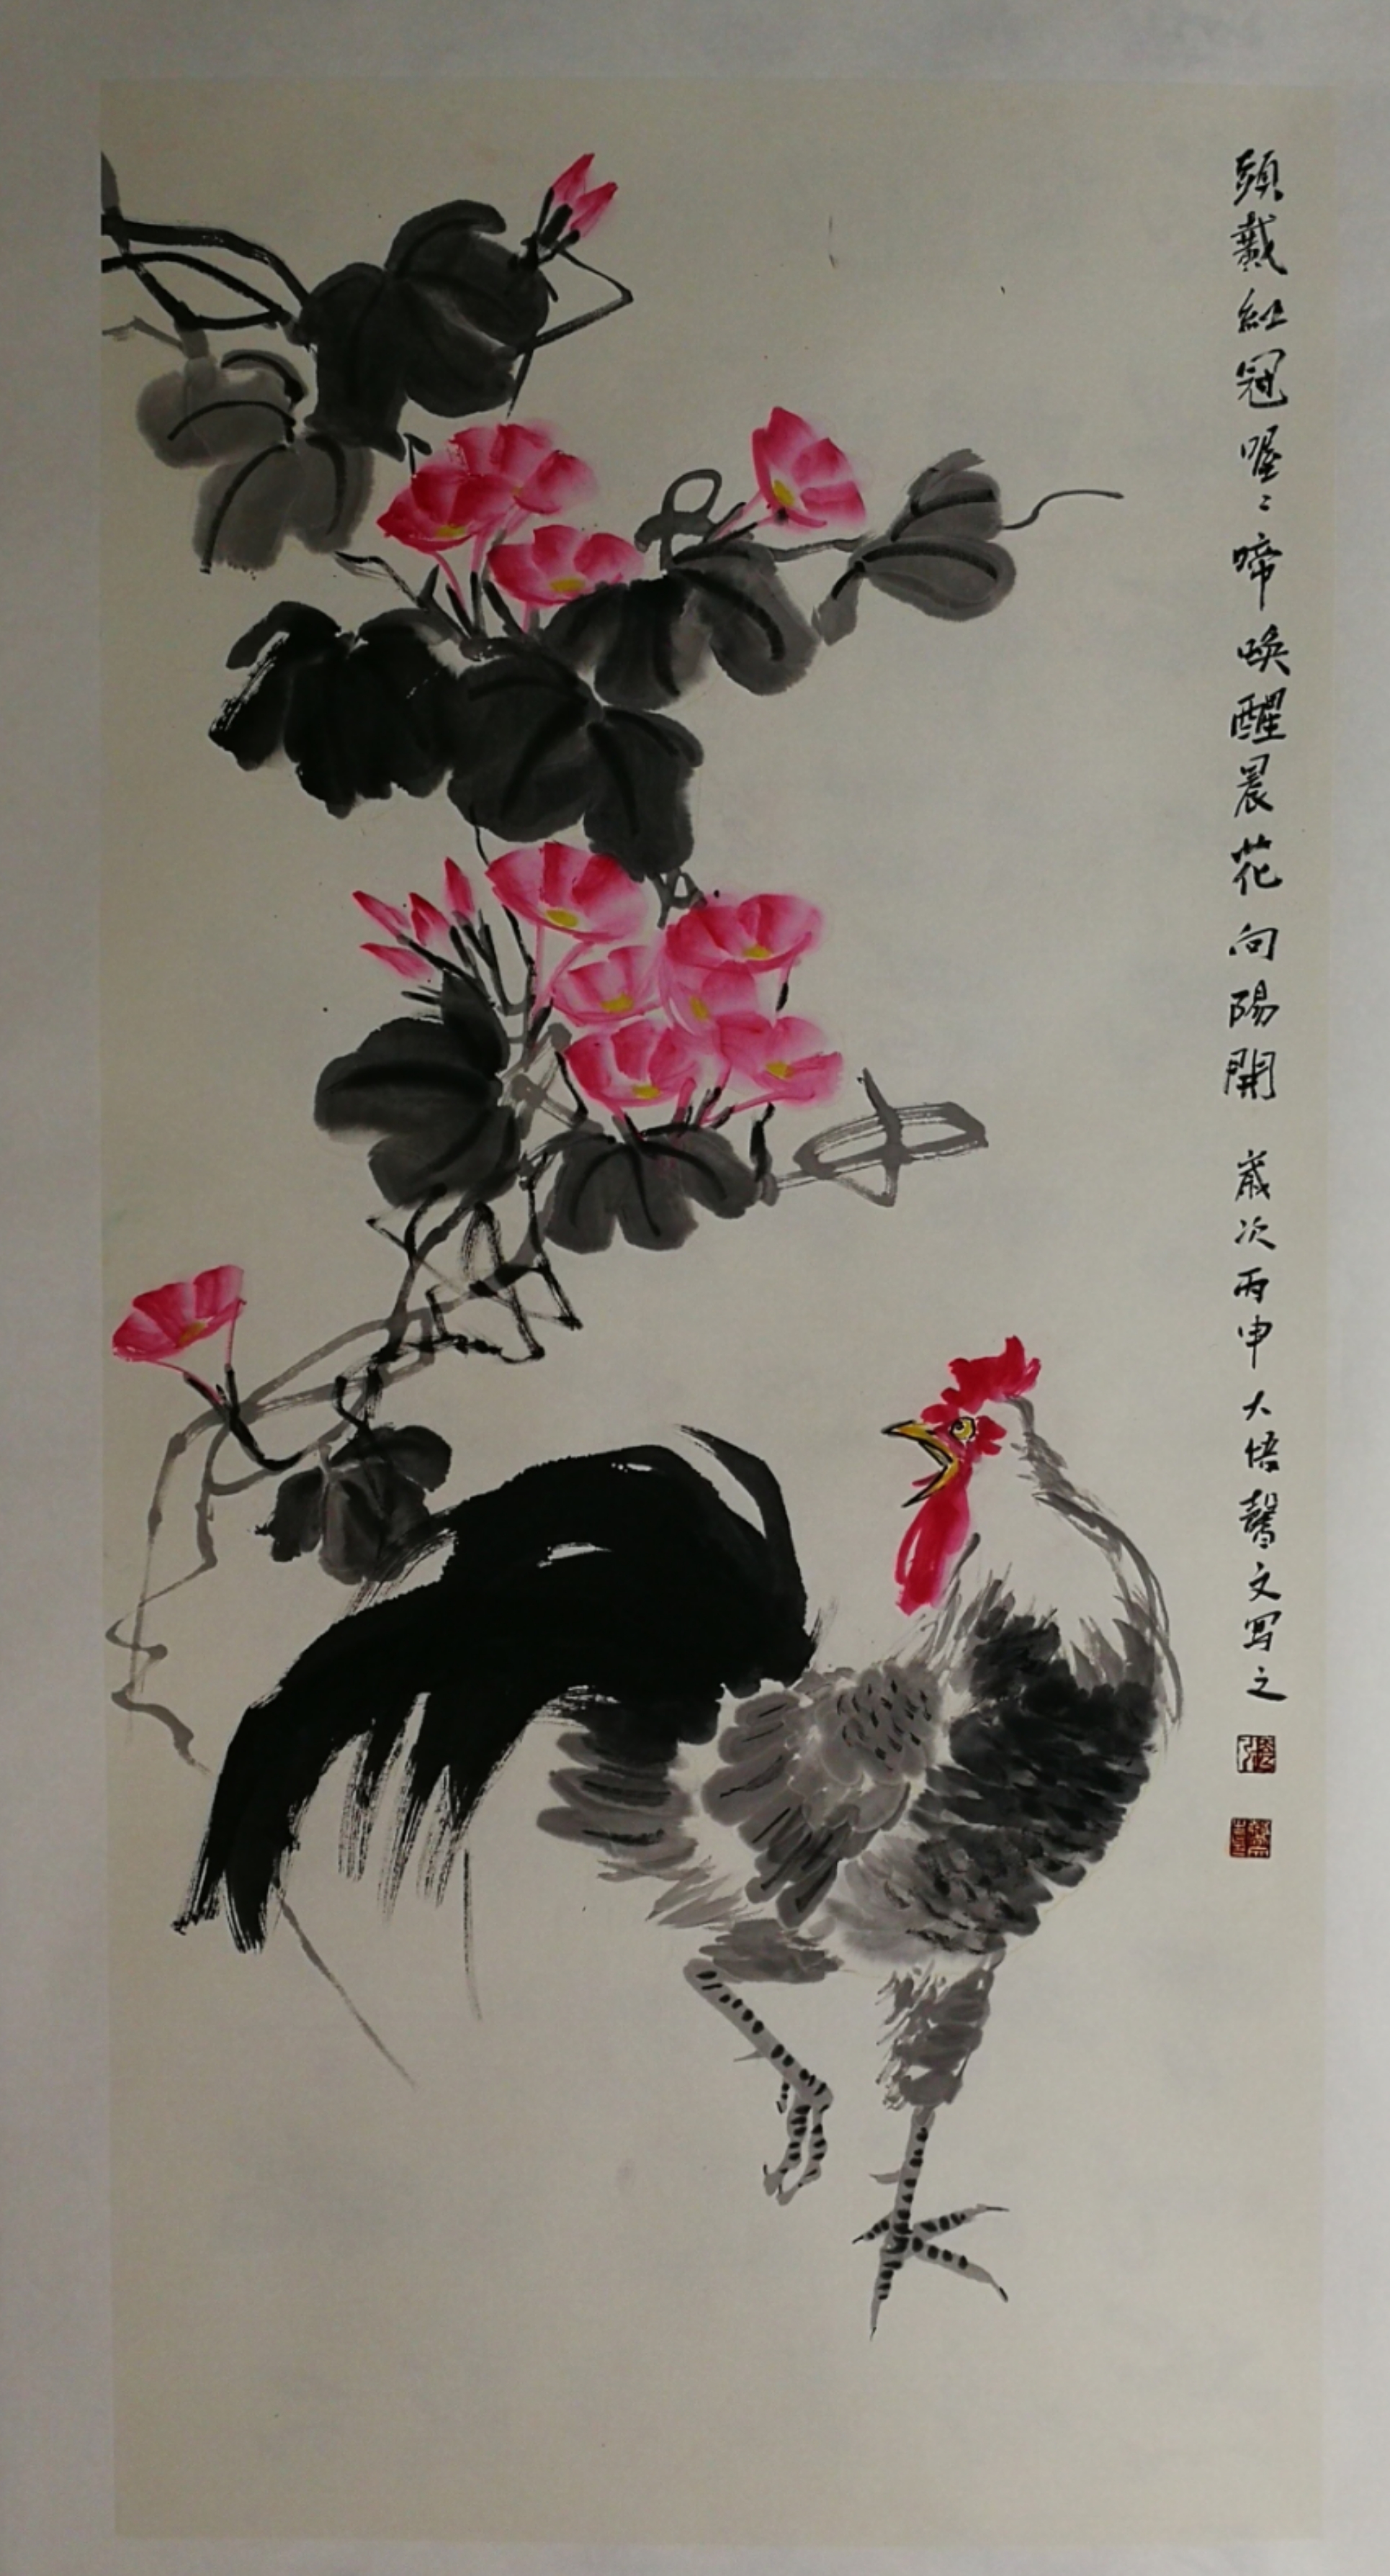 頭戴紅冠喔〻啼喚醒晨花向陽開 歲次丙申大悟馨文写之